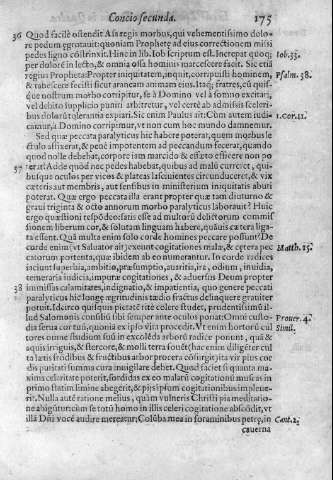 Concio secunda. 175
36 Quod facilè ostendit Asa regis morbus, qui vehementissimo dolo-
re pedum ægrotauit: quoniam Prophetæ ad eius correctionem missi
pedes ligno cōstrinxit. Hinc in lib. Iob scriptum est. Increpat quoq; Iob. 33.
per dolorē in lecto, & omnia ossa hominis marcescere facit. Sic etiā
regius Propheta: Propter iniquitatem, inquit, corripuisti hominem, Psalm. 38.
& tabescere fecisti sicut araneam animam eius. Itaq; fratres, cū quis-
quis nostrum morbo corripitur, se à Domino vel à somno excitari,
vel debito supplicio puniri arbitretur, vel certè ab admissis sceleri-
bus dolorū tolerantia expiari. Sic enim Paulus ait: Cùm autem iudi- 1. Cor. 11.
camur, à Domino corripimur, vt non cum hoc mundo damnemur.
Sed quæ peccata paralyticus hic habere poterat, quem morbus le-
ctulo affixerat, & penè impotentem ad peccandum fecerat, quando
quod nolle debebat, corpore iam marcido & exusto efficere non po
37 terat? Adde quòd nec pedes habebat, quibus ad malū curreret, qui-
busque oculos per vicos & plateas lasciuientes circunduceret, & vix
cæteris aut membris, aut sensibus in ministerium iniquitatis abuti
poterat. Quæ ergo peccata illa erant propter quæ tam diuturno &
graui triginta & octo annorum morbo paralyticus laborauit? Huic
ergo quæstioni respōdeo: satis esse ad multorū delictorum commis-
sionem liberum cor, & solutam linguam habere, quāuis cætera liga-
ta essent. Quā multa enim solo corde homines peccare possunt? De
corde enim (vt Saluator ait) exeunt cogitationes malæ, & cætera pec Matth. 15.
catorum portenta, quæ ibidem ab eo numerantur. In corde radices
iaciunt superbia, ambitio, præsumptio, auaritia, ira, odium, inuidia,
temeraria iudicia, impuræ cogitationes, & aduersus Deum propter
38 immissas calamitates, indignatio, & impatientia, quo genere peccati
paralyticus hic longæ ægritudinis tædio fractus delinquere grauiter
potuit. Idcirco quisquis pietatē ritè colere studet, prudentissimū il-
lud Salomonis consiliū sibi semper ante oculos ponat: Omni custo- Prouer. 4.
dia serua cor tuū, quonia ex ipso vita procedit. Vt enim hortorū cul Simil.
tores omne studium suū in excolēda arborū radice ponunt, quā &
aquis irriguis, & stercore, & molli terra fouēt (hac enim diligēter cul
ta latis frōdibus & fructibus arbor procera cōsurgit) ita vir pius cor
dis puritati summa cura inuigilare debet. Quod faciet si quanta ma-
xima celeritate poterit, sordidas ex eo malarū cogitationū muscas in
primo statim limine abegerit, & pijs ipsum cogitationibus impleue-
rit. Nulla autē ratione melius, quàm vulneris Christi pia meditatio-
ne abigūtur: cùm se totū homo in illis celeri cogitatione abscōdit, vt
illā Dn̄i vocē audire mereatur: Colūba mea in foraminibus petræ, in Cant. 2.
cauerna